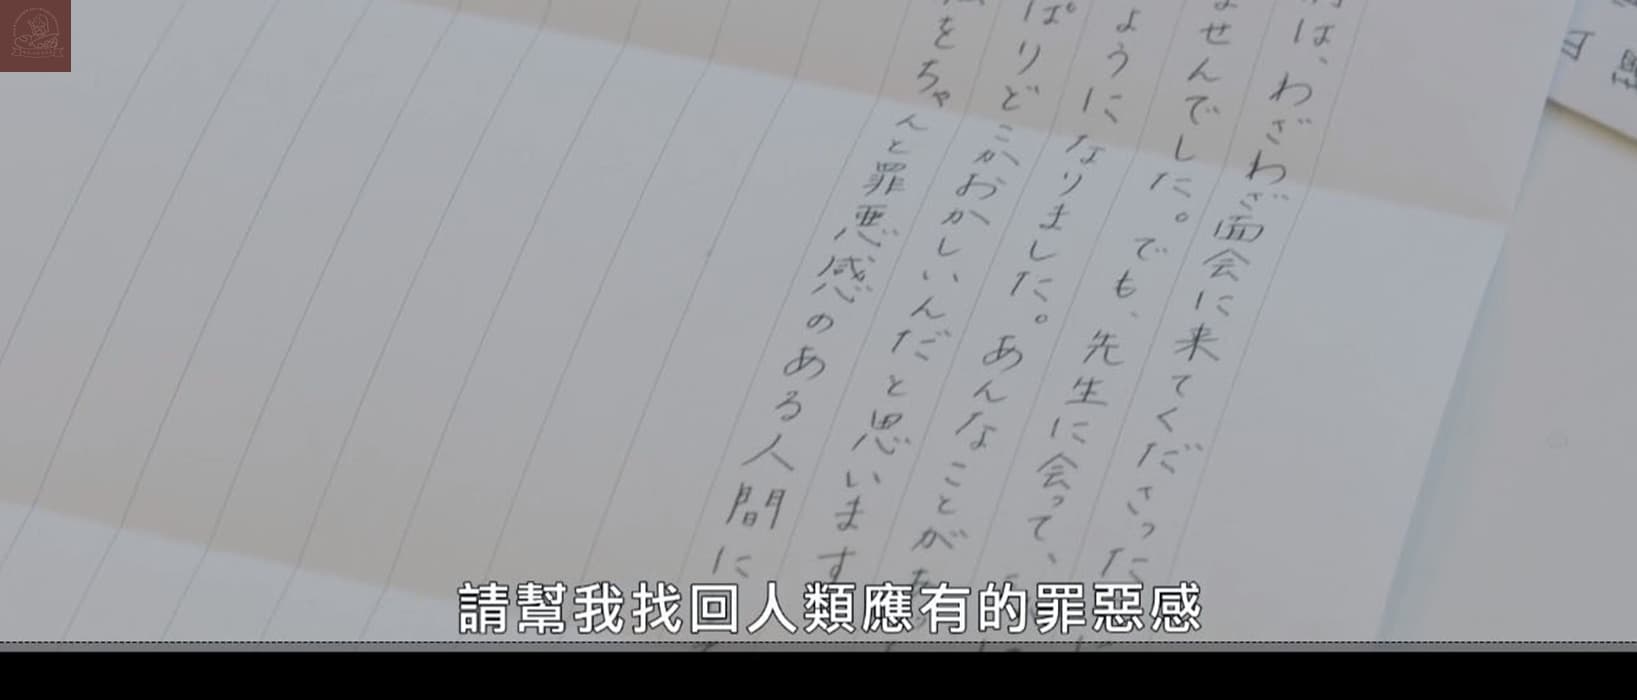 は、わざわざ面会に来てくださった
ませんでした。でも、先生に会って、
ようになりました。あんなことが
ぱりどこかおかしいんだと思います
をちゃんと罪悪感のある人間に
請幫我找回人類應有的罪惡感